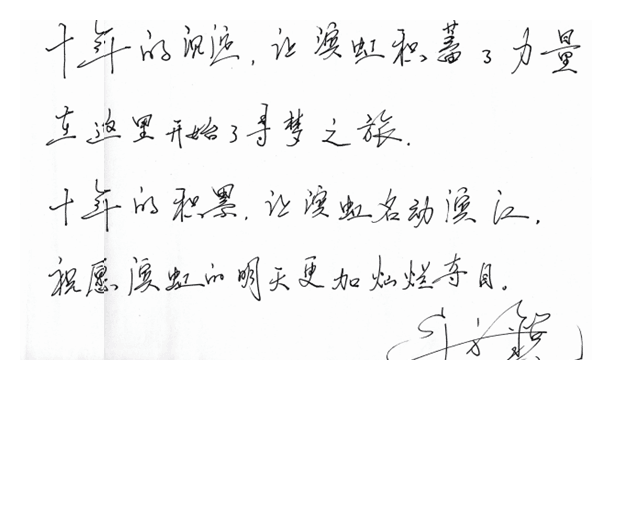 十年的沉淀，让滨虹积蓄了力量
在这里开始了寻梦之旅.
十年的积累，让滨虹名动滨江，
祝愿滨虹的明天更加灿烂夺目。